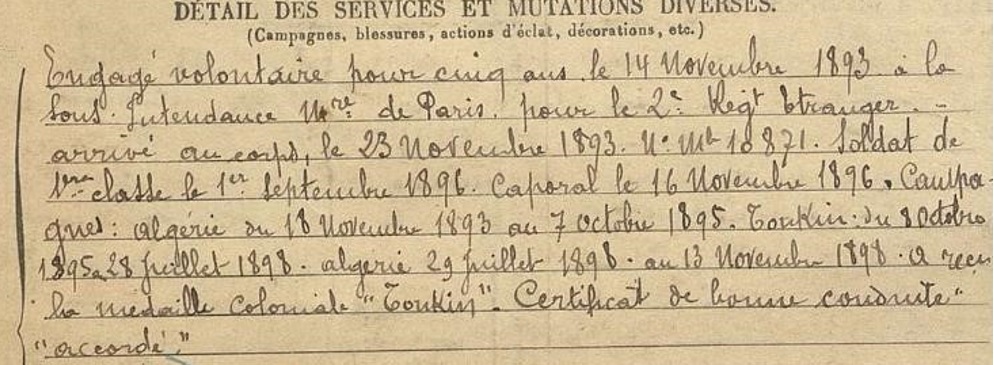 DÉTAIL DES SERVICES ET MUTATIONS DIVERSES.
(Campagnes, blessures, actions d'éclat, décorations, etc.)
Engagé volontaire pour cinq ans le 14 Novembre 1893 à la
Sous-Intendance Mre de Paris. pour le 2e Regt Etranger. -
arrivé au corps, le 23 Novembre 1893. No Mle 10871. Soldat de
1ère classe le 1er Septembre 1896. Caporal le 16 Novembre 1896. Campa-
gnes: algérie du 18 Novembre 1893 au 7 octobre 1895. Tonkin: du 8 octobre
1895 a 28 juillet 1898. algerie 29 juillet 1898. au 13 Novembre 1898. a reçu
la médaille Coloniale "Tonkin". Certificat de bonne conduite "
"accordé."